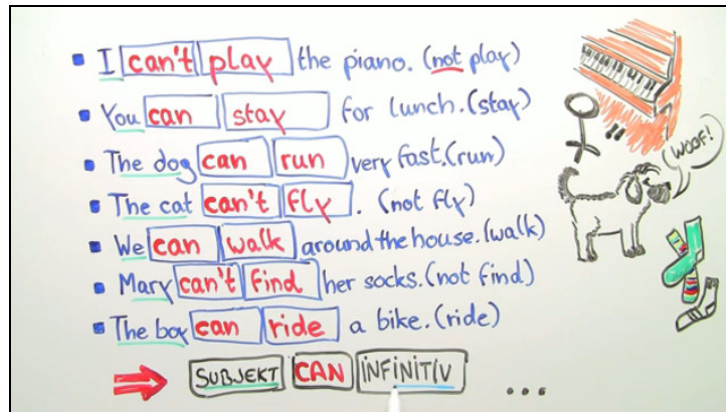 I can't play the piano. (not play)
You can stay for lunch. (stay)
The dog can run very fast. (run)
The cat can't fly. (not fly)
We can walk around the house. (walk)
Mary can't find her socks. (not find)
The boy can ride a bike. (ride)
SUBJEKT CAN INFINITIV ...
WOOF!